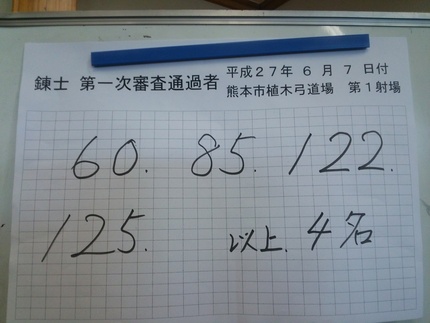 錬士 第一次審査通過者 平成27年 6 月 7 日付
熊本市植木弓道場 第1射場
60. 85. 122.
125. 以上. 4名